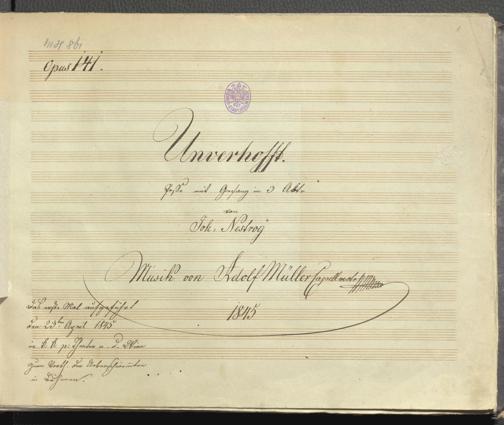 Opus 141.
Unverhofft.
Posse mit Gesang in 3 Akt.
von
Joh. Nestroy
Musik von Adolf Müller Capellmstr
1845
Das erste Mal aufgeführt
den 23ten April 1845
im k. k. p. Theater a. d. Wien
zum Vorth. der
in Böhmen.